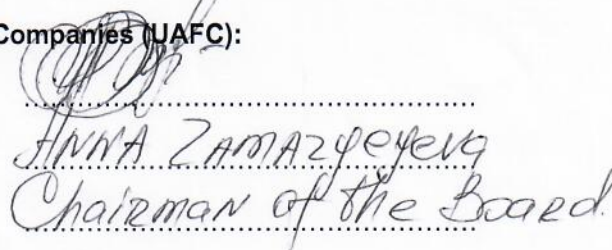 Companies (UAFC):
ANNA ZAMAZYEYEVA
Chairman of the Board